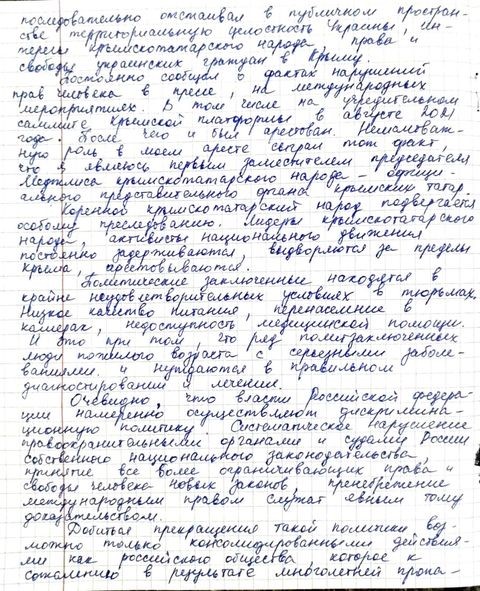 последовательно отстаивал в публичном простран-
стве территориальную целостность Украины, ин-
тересы крымскотатарского народа, права и
свободы украинских граждан в Крыму.
Постоянно сообщал о фактах нарушений
прав человека в прессе, на международных
мероприятиях. В том числе на учредительном
саммите Крымской платформы в августе 2021
года после чего и был арестован. Немаловаж-
ную роль в моем аресте сыграл тот факт,
что я являюсь первым заместителем председателя
Меджлиса крымскотатарского народа – офици-
ального представительного органа крымских татар.
Коренной крымскотатарский народ подвергается
особому преследованию. Лидеры крымскотатарского
народа, активисты национального движения
постоянно задерживаются, выдворяются за пределы
Крыма, арестовываются.
Политические заключенные находятся в
крайне неудовлетворительных условиях в тюрьмах.
Низкое качество питания, перенаселение в
камерах, недоступность медицинской помощи.
И это при том, что ряд политзаключенных
люди пожилого возраста с серьезными заболе-
ваниями и нуждаются в правильном
диагностировании и лечении.
Очевидно, что власти Российской федера-
ции намеренно осуществляют дискримина-
ционную политику. Систематическое нарушение
правоохранительными органами и судами России
собственного национального законодательства,
принятие все более ограничивающих права и
свободы человека новых законов, пренебрежение
международным правом служат явным тому
доказательством.
Добиться прекращения такой политики воз-
можно только консолидированными действия-
ми как российского общества, которое к
сожалению в результате многолетней пропа-